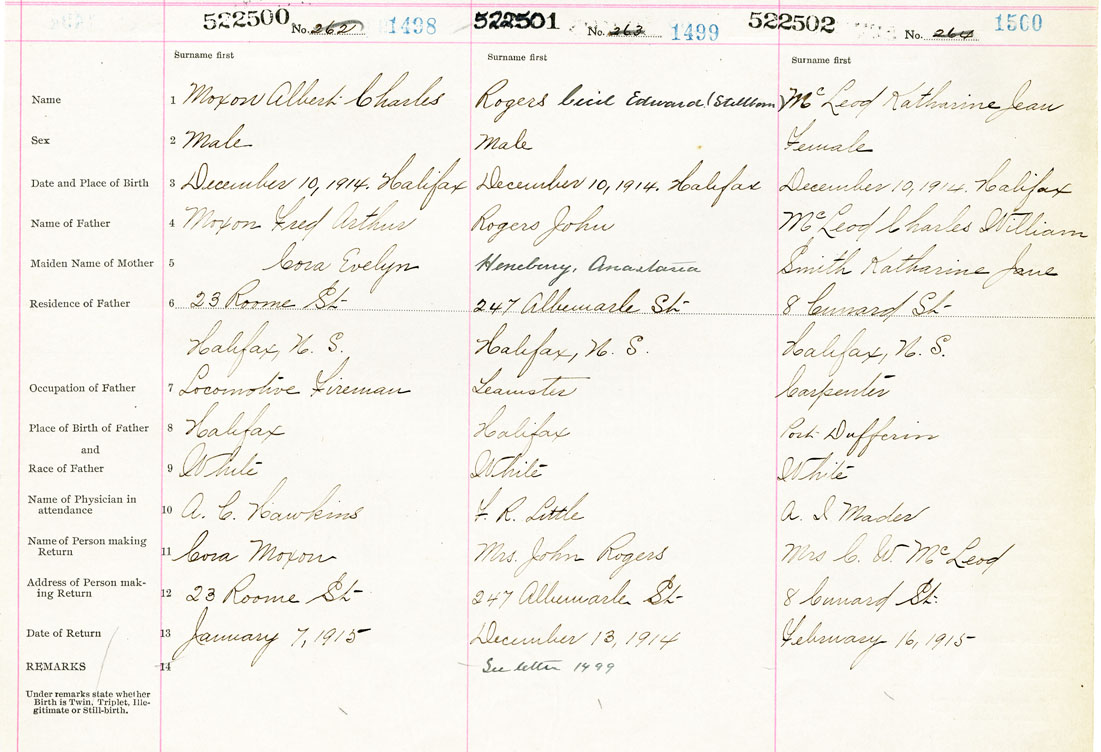 522500 No. 262 1498 522501 No. 263 1499 522502 No. 264 1500
Surname first Surname first Surname first
Name 1 Moxon Albert Charles Rogers Cecil Edward (Stillborn) McLeod Katharine Jean
Sex 2 Male Male Female
Date and Place of Birth 3 December 10, 1914. Halifax December 10, 1914. Halifax December 10, 1914. Halifax
Name of Father 4 Moxon Fred Arthur Rogers John McLeod Charles William
Maiden Name of Mother 5 Cora Evelyn Heneberry, Anastasia Smith Katharine Jane
Residence of Father 6 23 Roome St 247 Albemarle St 8 Cunard St
Halifax, N. S. Halifax, N. S. Halifax, N. S.
Occupation of Father 7 Locomotive Fireman Teamster Carpenter
Place of Birth of Father 8 Halifax Halifax Port Dufferin
and
Race of Father 9 White White White
Name of Physician in
attendance 10 A. C. Hawkins F. R. Little A. I Mader
Name of Person making
Return 11 Cora Moxon Mrs. John Rogers Mrs C. W. McLeod
Address of Person mak-
ing Return 12 23 Roome St 247 Albemarle St 8 Cunard St.
Date of Return 13 January 7, 1915 December 13, 1914 February 16, 1915
REMARKS 14 See letter 1499
Under remarks state whether
Birth is Twin, Triplet, Ille-
gitimate or Still-birth.